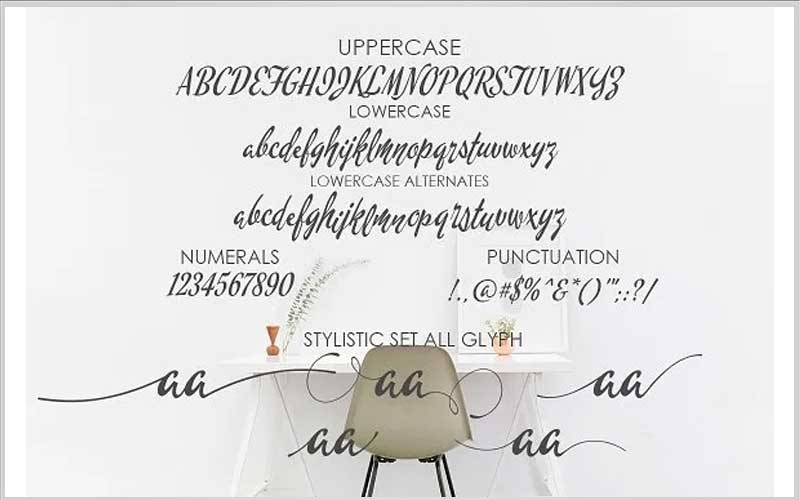 UPPERCASE
ABCDEFGHIJKLMNOPQRSTUVWXYZ
LOWERCASE
abcdefghijklmnopqrstuvwxyz
LOWERCASE ALTERNATES
abcdefghijklmnopqrstuvwxyz
NUMERALS PUNCTUATION
1234567890 !.,@#$%^&*()"';:?/
STYLISTIC SET ALL GLYPH
aa aa aa
aa aa